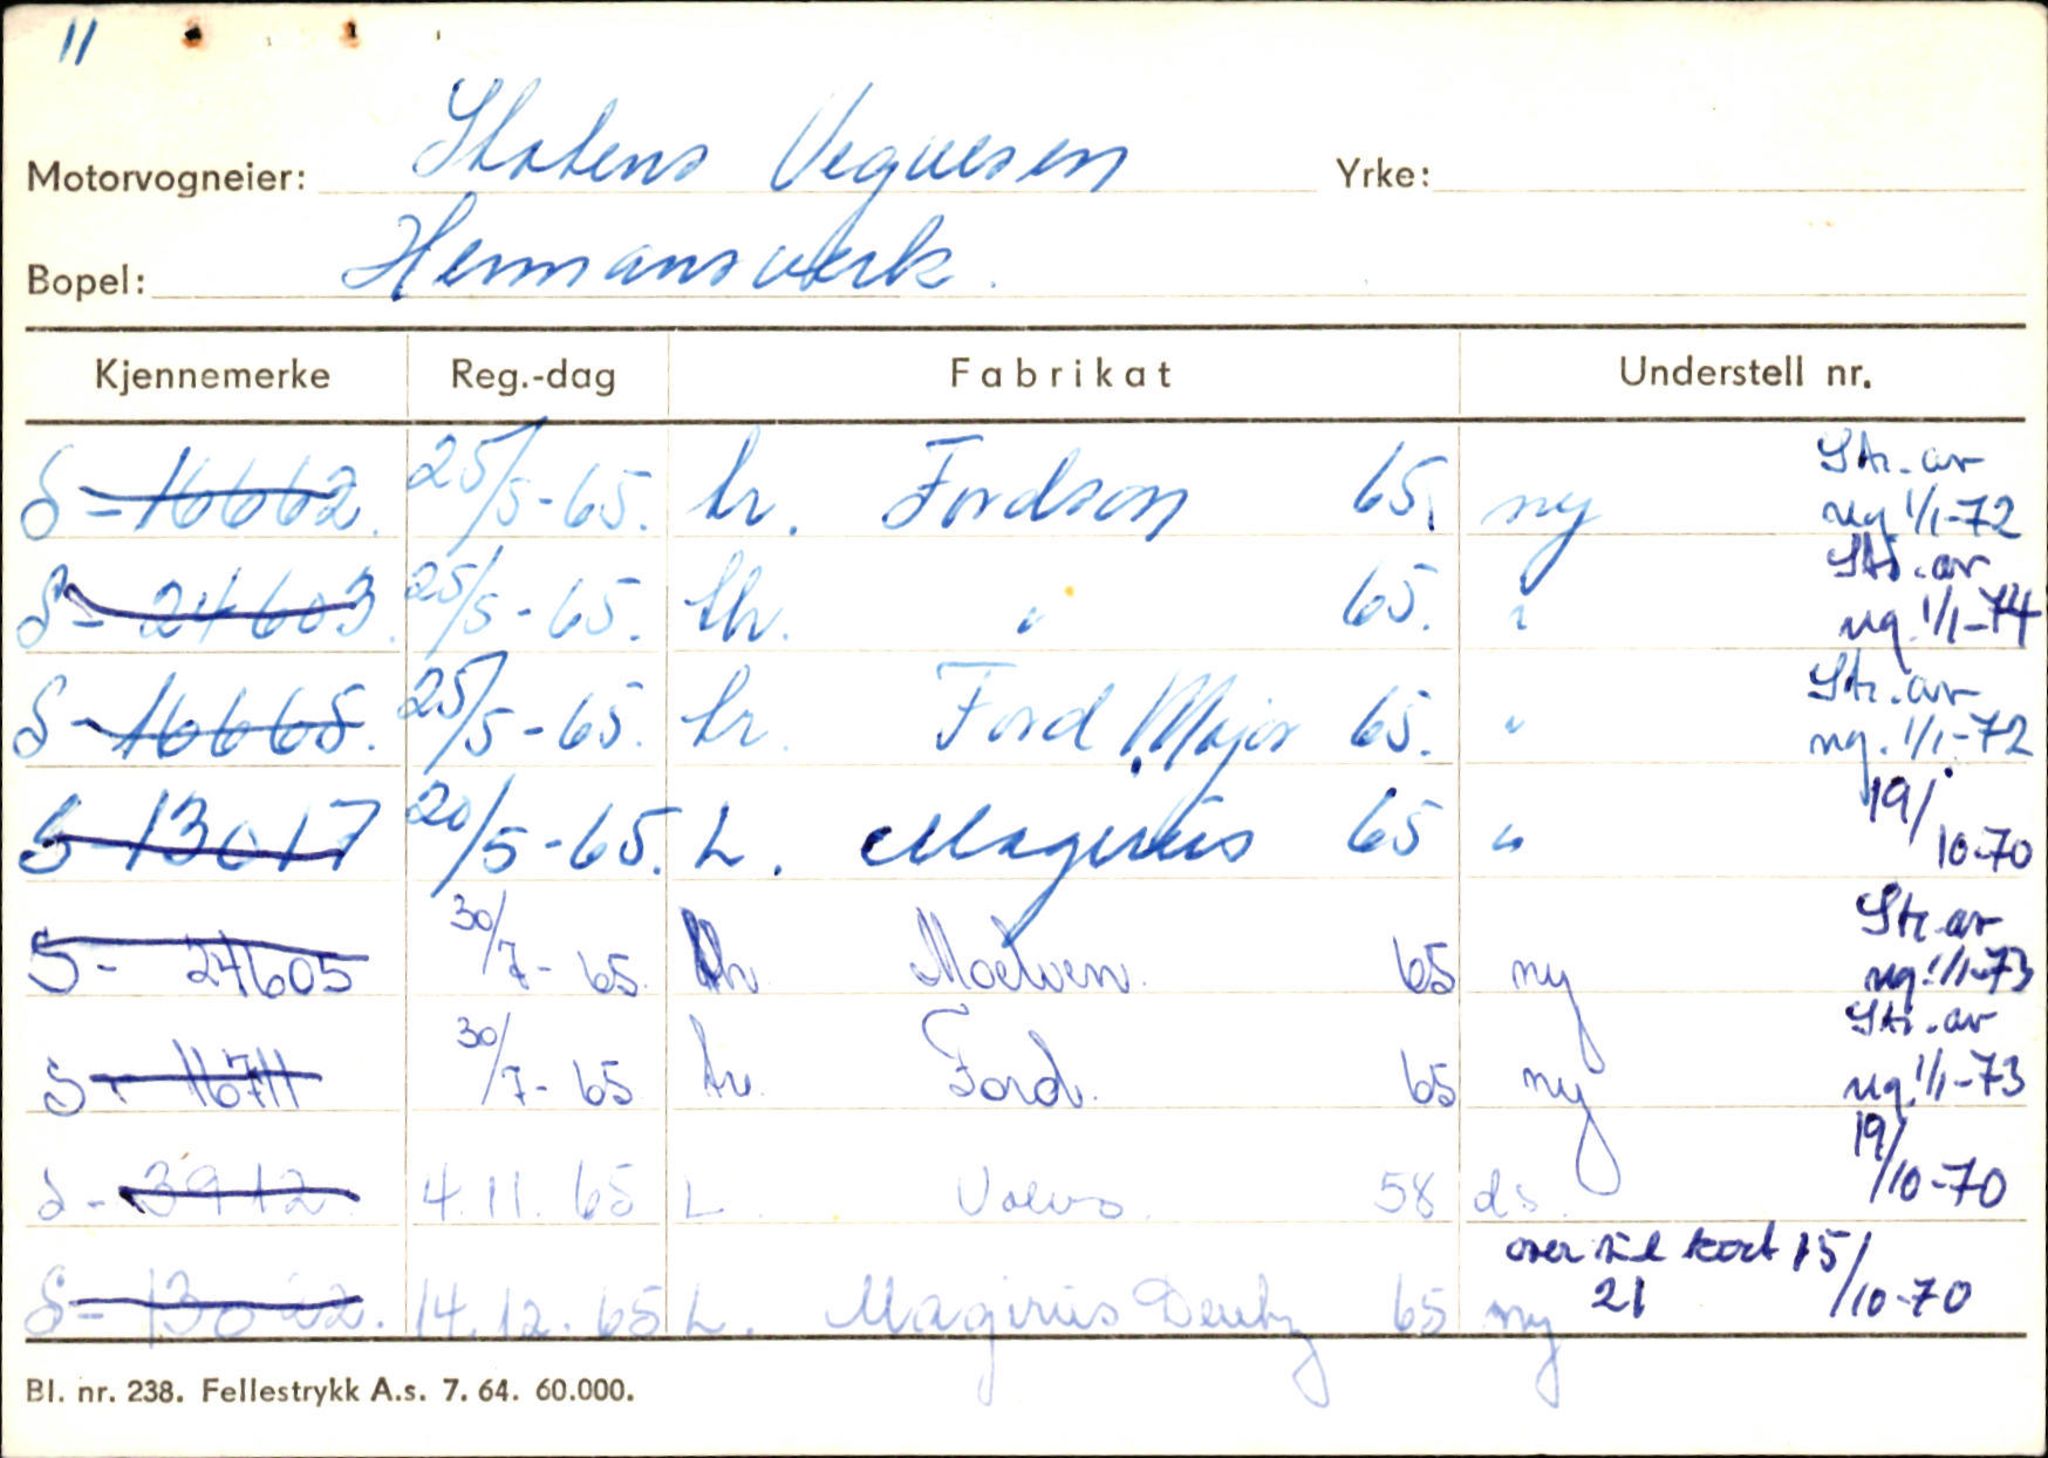 11
Motorvogneier: Statens Vegvesen Yrke:
Bopel: Hermansverk.
Kjennemerke Reg.-dag Fabrikat Understell nr.
S-16662. 25/5-65. tr. Fordson 65. ny Str. av reg. 1/1-72
S-24603. 25/5-65. thr. " 65. " Str. av reg. 1/1-74
S-16665. 25/5-65. tr. Ford Major 65. " Str. av reg. 1/1-72
S-13017 20/5-65. L. Magirus 65 " 19/10-70
S-24605 30/7-65. thr. Moelven. 65 ny Str. av reg. 1/1-73
S-16711 30/7-65 tr. Ford. 65 ny Str. av reg. 1/1-73
S-3912. 4.11.65 L. Volvo. 58 ds. 19/10-70
S-13022. 14.12.65 L. Magirus Deutz 65 ny over til kort 21 15/10-70
Bl. nr. 238. Fellestrykk A.s. 7. 64. 60.000.